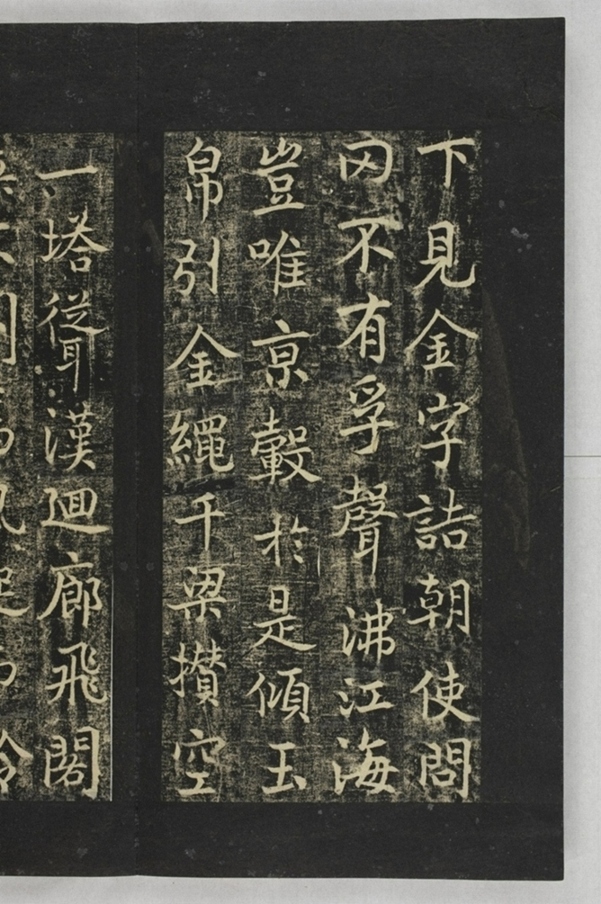 下見金字詰朝使問
罔不有孚聲沸江海
豈唯京轂於是傾玉
帛引金繩千梁攢空
一塔聳漢迴廊飛閣